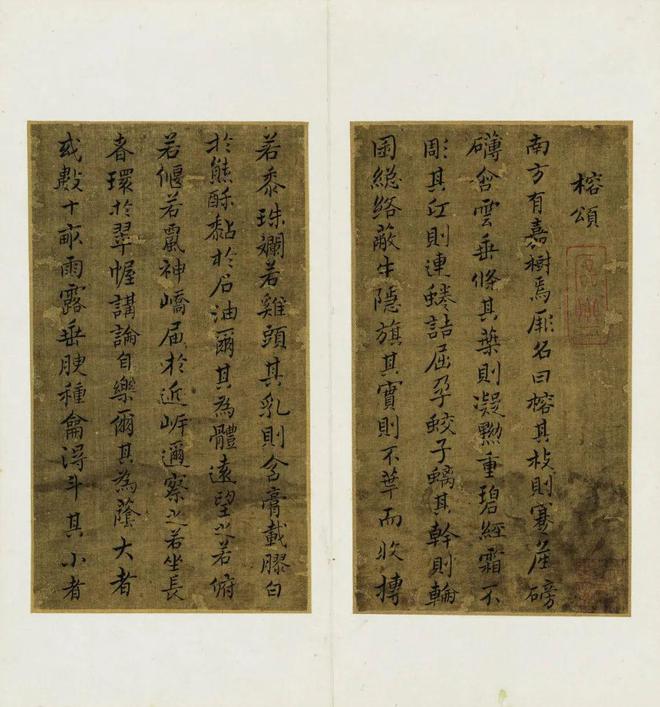 榕頌
南方有嘉樹焉厥名曰榕其枝則騫崖磅
礴含雲垂條其葉則凝黝重碧經霜不
彫其
則連蜷詰屈孕蛟子螭其幹則輪
囷總絡蔽牛隱旗其實則不華而收摶
若黍珠斕若雞頭其乳則含膏載膠白
於熊酥黏於石油爾其為體遠望之若俯
若偃若
神嶠屆於近岸邇察之若坐長
者環於翠幄講論自樂爾其為蔭大者
或數十畝雨露垂腴種
得斗其小者